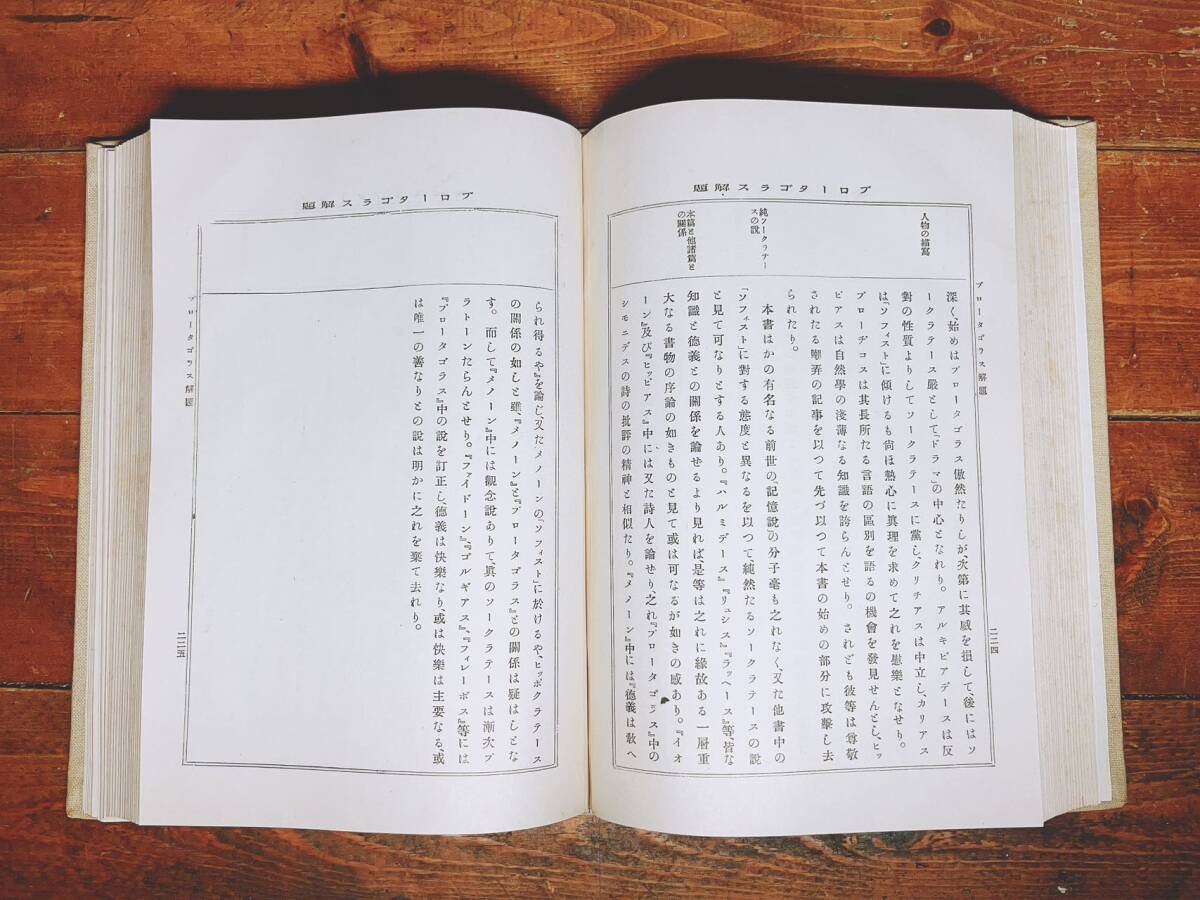 プロータゴラス解題
人物の描寫
純ソークラテー
スの說
本篇と他諸篇と
の關係
プロータゴラス解題
二二四
深く、始めはプロータゴラス傲然たりしが、次第に其威を損して、後にはソ
ークラテース嚴としてドラマ」の中心となれり。アルキビアデースは反
對の性質よりしてソークラテースに黨し、クリチアスは中立し、カリアス
は「ソフィスト」に傾けるも尙ほ熱心に眞理を求めて之れを慰樂となせり。
プローヂコスは其長所たる言語の區別を語るの機會を發見せんとし、ヒッ
ピアスは自然學の淺薄なる知識を誇らんとせり。されども彼等は尊敬
されたる嘲弄の記事を以つて先づ以つて本書の始めの部分に攻擊し去
られたり。
本書はかの有名なる前世の「記憶說」の分子毫も之れなく、又た他書中の
「ソフィスト」に對する態度と異なるを以つて、純然たるソークラテースの說
と見て可なりとする人あり。『ハルミデース』『リュシス』『ラッヘース』等、皆な
知識と德義との關係を論せるより見れば、是等は之れに緣故ある一層重
大なる書物の序論の如きものと見て或は可なるが如きの感あり。『イオ
ーン』及び『ヒッピアス』中には又た詩人を論せり、之れ『プロータゴラス』中の
シモニデスの詩の批評の精神と相似たり。『メノーン』中には『德義は敎へ
プロータゴラス解題
られ得るや』を論じ、又たメノーンの「ソフィスト」に於けるや、ヒッポクラテース
の關係の如しと雖、『メノーン』と『プロータゴラス』との關係は疑はしとな
す。而して『メノーン』中には觀念說ありて、眞のソークラテースは漸次プ
ラトーンたらんとせり。『ファイドーン』、『ゴルギアス』、『フィレーボス』等には
『プロータゴラス』中の說を訂正し、德義は快樂なり、或は快樂は主要なる、或
は唯一の善なりとの說は明かに之れを棄て去れり。
プロータゴラス解題
二二五